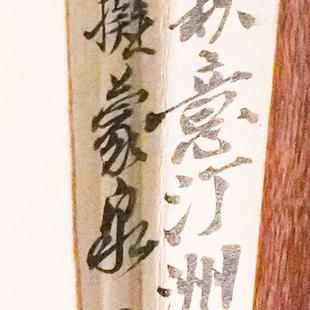 秋意汀洲
擬蒙泉